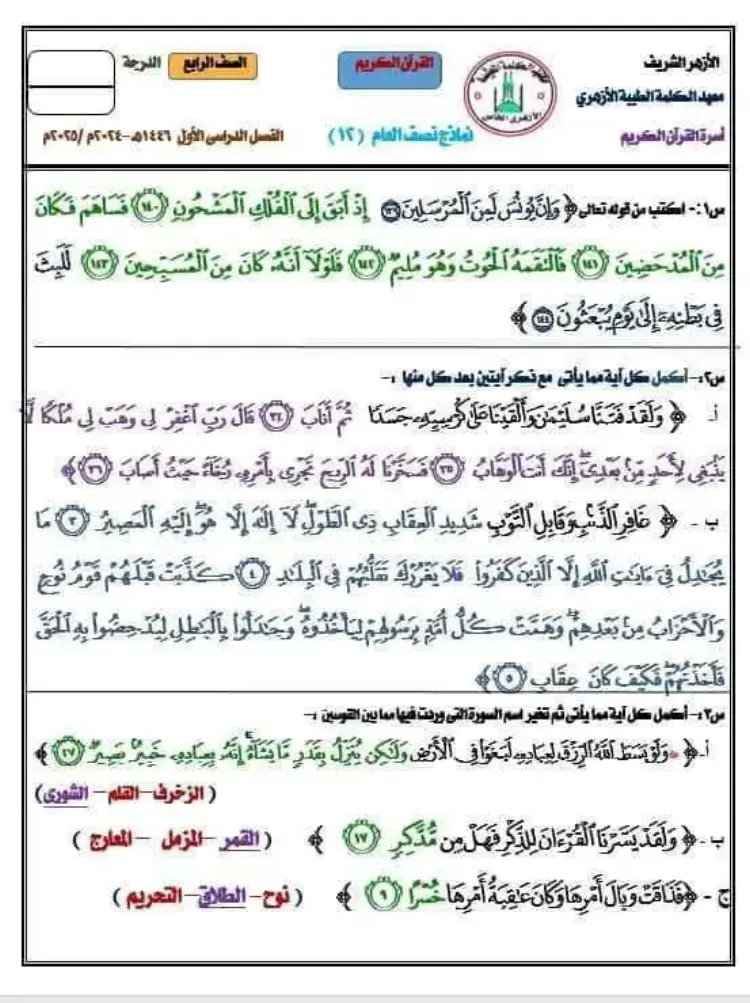 الأزهر الشريف
معهد الكلمة الطيبة الأزهري
أسرة القرآن الكريم
القرآن الكريم
نماذج نصف العام (١٢)
الصف الرابع
الدرجة
الفصل الدراسي الأول ١٤٤٦هـ-٢٠٢٤م /٢٠٢٥م
س١:- اكتب من قوله تعالى ﴿ وَإِنَّ يُونُسَ لَمِنَ ٱلْمُرْسَلِينَ ١٣٩ إِذْ أَبَقَ إِلَى ٱلْفُلْكِ ٱلْمَشْحُونِ ١٤٠ فَسَاهَمَ فَكَانَ
مِنَ ٱلْمُدْحَضِينَ ١٤١ فَٱلْتَقَمَهُ ٱلْحُوتُ وَهُوَ مُلِيمٌ ١٤٢ فَلَوْلَآ أَنَّهُۥ كَانَ مِنَ ٱلْمُسَبِّحِينَ ١٤٣ لَلَبِثَ
فِى بَطْنِهِۦٓ إِلَىٰ يَوْمِ يُبْعَثُونَ ١٤٤ ﴾
س٢:- أكمل كل آية مما يأتى مع ذكر آيتين بعد كل منها :-
أ- ﴿ وَلَقَدْ فَتَنَّا سُلَيْمَٰنَ وَأَلْقَيْنَا عَلَىٰ كُرْسِيِّهِۦ جَسَدًا ثُمَّ أَنَابَ ٣٤ قَالَ رَبِّ ٱغْفِرْ لِى وَهَبْ لِى مُلْكًا لَّا
يَنۢبَغِى لِأَحَدٍ مِّنۢ بَعْدِىٓ إِنَّكَ أَنتَ ٱلْوَهَّابُ ٣٥ فَسَخَّرْنَا لَهُ ٱلرِّيحَ تَجْرِى بِأَمْرِهِۦ رُخَآءً حَيْثُ أَصَابَ ٣٦ ﴾
ب - ﴿ غَافِرِ ٱلذَّنۢبِ وَقَابِلِ ٱلتَّوْبِ شَدِيدِ ٱلْعِقَابِ ذِى ٱلطَّوْلِ لَآ إِلَٰهَ إِلَّا هُوَ إِلَيْهِ ٱلْمَصِيرُ ٣ مَا
يُجَٰدِلُ فِىٓ ءَايَٰتِ ٱللَّهِ إِلَّا ٱلَّذِينَ كَفَرُوا۟ فَلَا يَغْرُرْكَ تَقَلُّبُهُمْ فِى ٱلْبِلَٰدِ ٤ كَذَّبَتْ قَبْلَهُمْ قَوْمُ نُوحٍ
وَٱلْأَحْزَابُ مِنۢ بَعْدِهِمْ وَهَمَّتْ كُلُّ أُمَّةٍۭ بِرَسُولِهِمْ لِيَأْخُذُوهُ وَجَٰدَلُوا۟ بِٱلْبَٰطِلِ لِيُدْحِضُوا۟ بِهِ ٱلْحَقَّ
فَأَخَذْتُهُمْ فَكَيْفَ كَانَ عِقَابِ ٥ ﴾
س٣:- أكمل كل آية مما يأتى ثم تخير اسم السورة التى وردت فيها مما بين القوسين :-
أ- ﴿ وَلَوْ بَسَطَ ٱللَّهُ ٱلرِّزْقَ لِعِبَادِهِۦ لَبَغَوْا۟ فِى ٱلْأَرْضِ وَلَٰكِن يُنَزِّلُ بِقَدَرٍ مَّا يَشَآءُ إِنَّهُۥ بِعِبَادِهِۦ خَبِيرٌۢ بَصِيرٌ ٢٧ ﴾
( الزخرف– القلم– الشورى)
ب - ﴿ وَلَقَدْ يَسَّرْنَا ٱلْقُرْءَانَ لِلذِّكْرِ فَهَلْ مِن مُّدَّكِرٍ ١٧ ﴾ ( القمر –المزمل – المعارج )
ج - ﴿فَذَاقَتْ وَبَالَ أَمْرِهَا وَكَانَ عَٰقِبَةُ أَمْرِهَا خُسْرًا ٩ ﴾ ( نوح– الطلاق– التحريم )